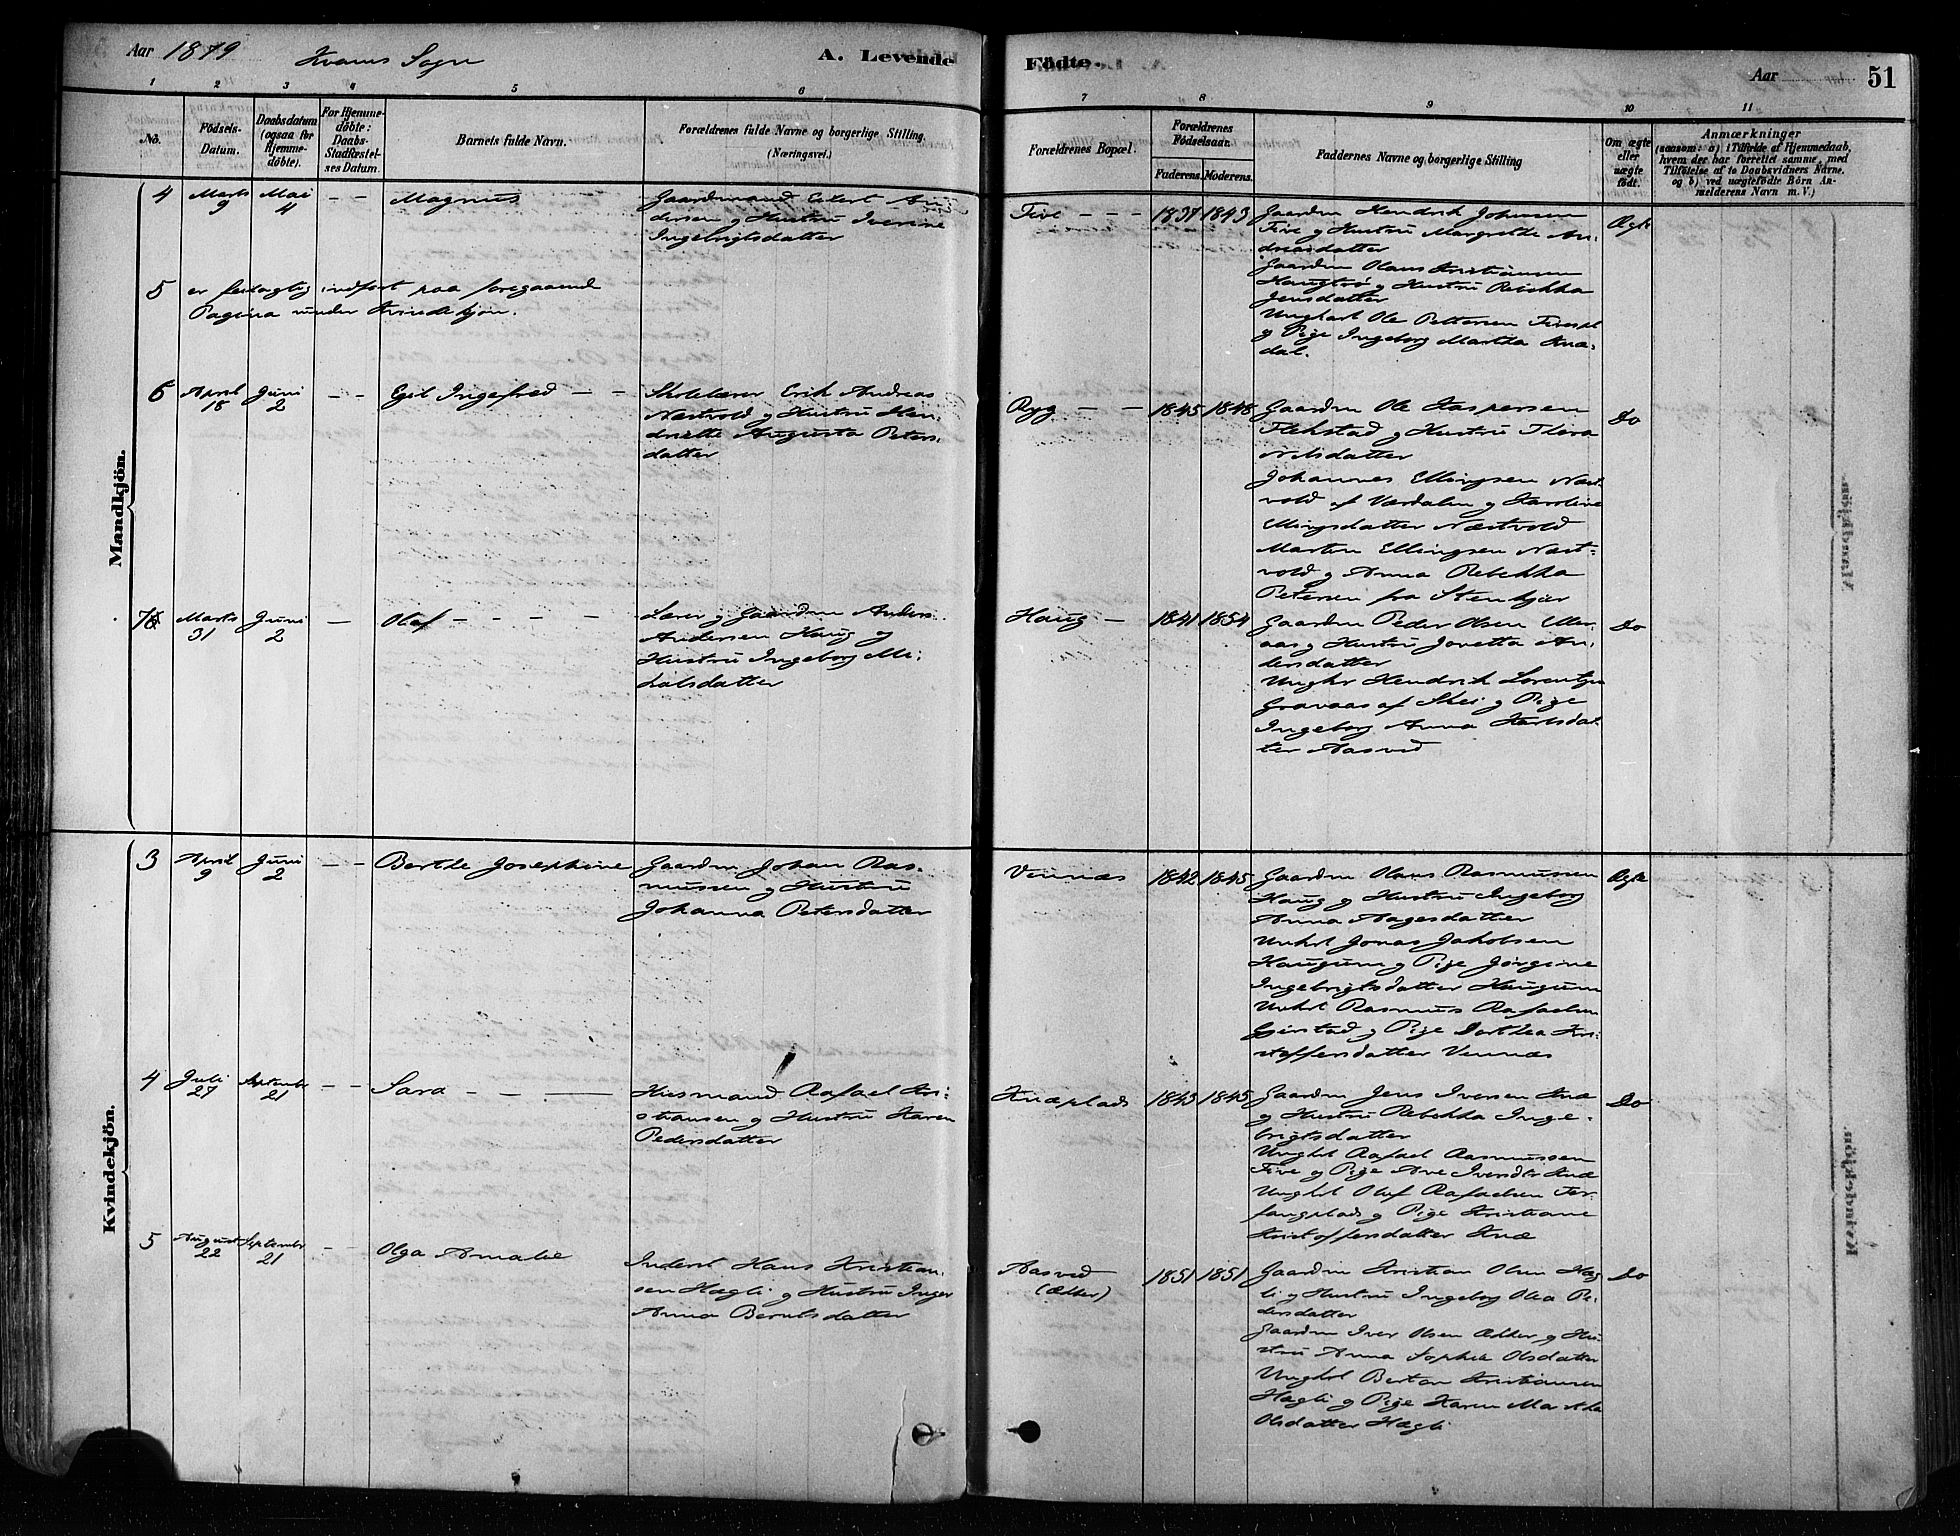 Aar 1879 Kvams Sogn A. Levende Födte. Aar 51
1 2 3 4 5 6 7 8 9 10 11
No.
Födsels-Datum.
Daabsdatum (ogsaa for Hjemmedöbte).
For Hjemmedöbte: Daabs-Stadfæstelses Datum.
Barnets fulde Navn.
Forældrenes fulde Navne og borgerlige Stilling.
(Næringsvei.)
Forældrenes Bopæl.
Forældrenes Födselsaar.
Faderens. Moderens.
Faddernes Navne og borgerlige Stilling
Om ægte eller uægte födt.
Anmærkninger
(saasom: a) i Tilfælde af Hjemmedaab,
hvem der har forrettet samme, med
Tilföielse af to Daabsvidners Navne.
og b) ved uægtefödte Börn An-
melderens Navn m. V.)
Mandkjön.
4 Marts 9 Mai 4 - - Magnus
Gaardmand Eilert An-
dersen og Hustru Iverine
Ingebrigtsdatter
Five - - - 1837 1843
Gaardm Hendrik Johnsen
Five og Hustru Margrethe An-
dreasdatter
Gaardm Olaus Kristiansen
Haugtrø og Hustru Rebekka
Jensdatter
Ungkarl Ole Pettersen Fivespl
og Pige Ingeborg Martha Knæ-
dal.
Ægte
5 er feilagtig indført paa foregaaende
Pagina under Kvindekjøn.
6 April 18 Juni 2 - - Egil Ingefred - -
Skolelærer Erik Andreas
Næstvold og Hustru Hen-
driette Augusta Peters-
datter
Ryg - - 1845 1848
Gaardm Ole Kaspersen
Flekstad og Hustru Thora
Nilsdatter
Johannes Ellingsen Næst-
vold af Værdalen og Karoline
Ellingsdatter Næstvold
Martin Ellingsen Næst-
vold og Anna Rebekka
Petersen fra Stenkjær
Do
7 Marts 31 Juni 2 - Olaf - - - -
Lærer og Gaardm Anders
Andersen Haug og
Hustru Ingeborg Mi-
kalsdatter
Haug - 1841 1854
Gaardm Peder Olsen Eller-
aas og Hustru Jonetta An-
dersdatter
Ungkr Hendrik Lorentsen
Gravaas af Skei og Pige
Ingeborg Anna Karlsdat-
ter Aasved
Do
Kvindekjön.
3 April 9 Juni 2 - - Berthe Josephine
Gaardm Johan Ras-
mussen og Hustru
Johanna Petersdatter
Vennæs 1842 1845
Gaardm Olaus Rasmussen
Haug og Hustru Ingeborg
Anna Aagesdatter
Unkrl Jonas Jakobsen
Haugum og Pige Jørgine
Ingebrigtsdatter Haugum
Unkrl Rasmus Rafaelsen
Gjirstad og Pige Dorthea Kri-
stoffersdatter Vennæs
Ægte
4 Juli 27 September 21 - - Sara - -
Husmand Rafael Kri-
stiansen og Hustru Karen
Pedersdatter
Knæplads 1843 1845
Gaardm Jens Iversen Knæ
og Hustru Rebekka Inge-
brigtsdatter
Ungkl Rafael Rasmussen
Five og Pige Ane Iversdtr Knæ
Ungkrl Oluf Rafaelsen For-
fangplads og Pige Kristiane
Kristoffersdatter Knæ
Do
5 August 22 September 21 - - Olga Amalie
Inderst Hans Kristian-
sen Hægli og Hustru Inger
Anna Berntsdatter
Aasved
(Ædter)
1851 1851
Gaardm Kristian Olsen Hæg-
li og Hustru Ingeborg Olea Pe-
dersdatter
Gaardm Iver Olsen Ædter og Hu-
stru Anna Sophia Olsdatter
Ungkrl Bertan Kristiansen
Hægli og Pige Karen Martha
Olsdatter Hægli
Do